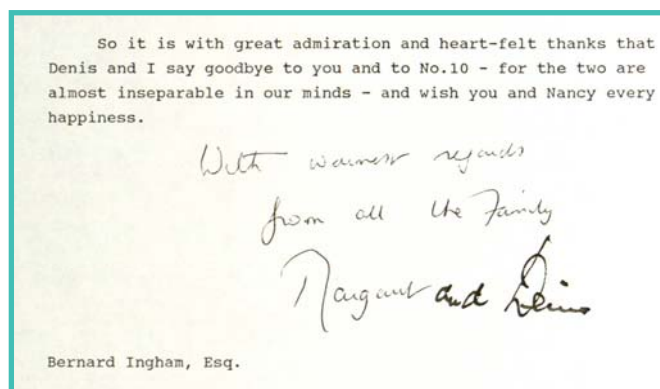 So it is with great admiration and heart-felt thanks that
Denis and I say goodbye to you and to No.10 - for the two are
almost inseparable in our minds - and wish you and Nancy every
happiness.
With warmest regards
from all the Family
Margaret and Denis
Bernard Ingham, Esq.